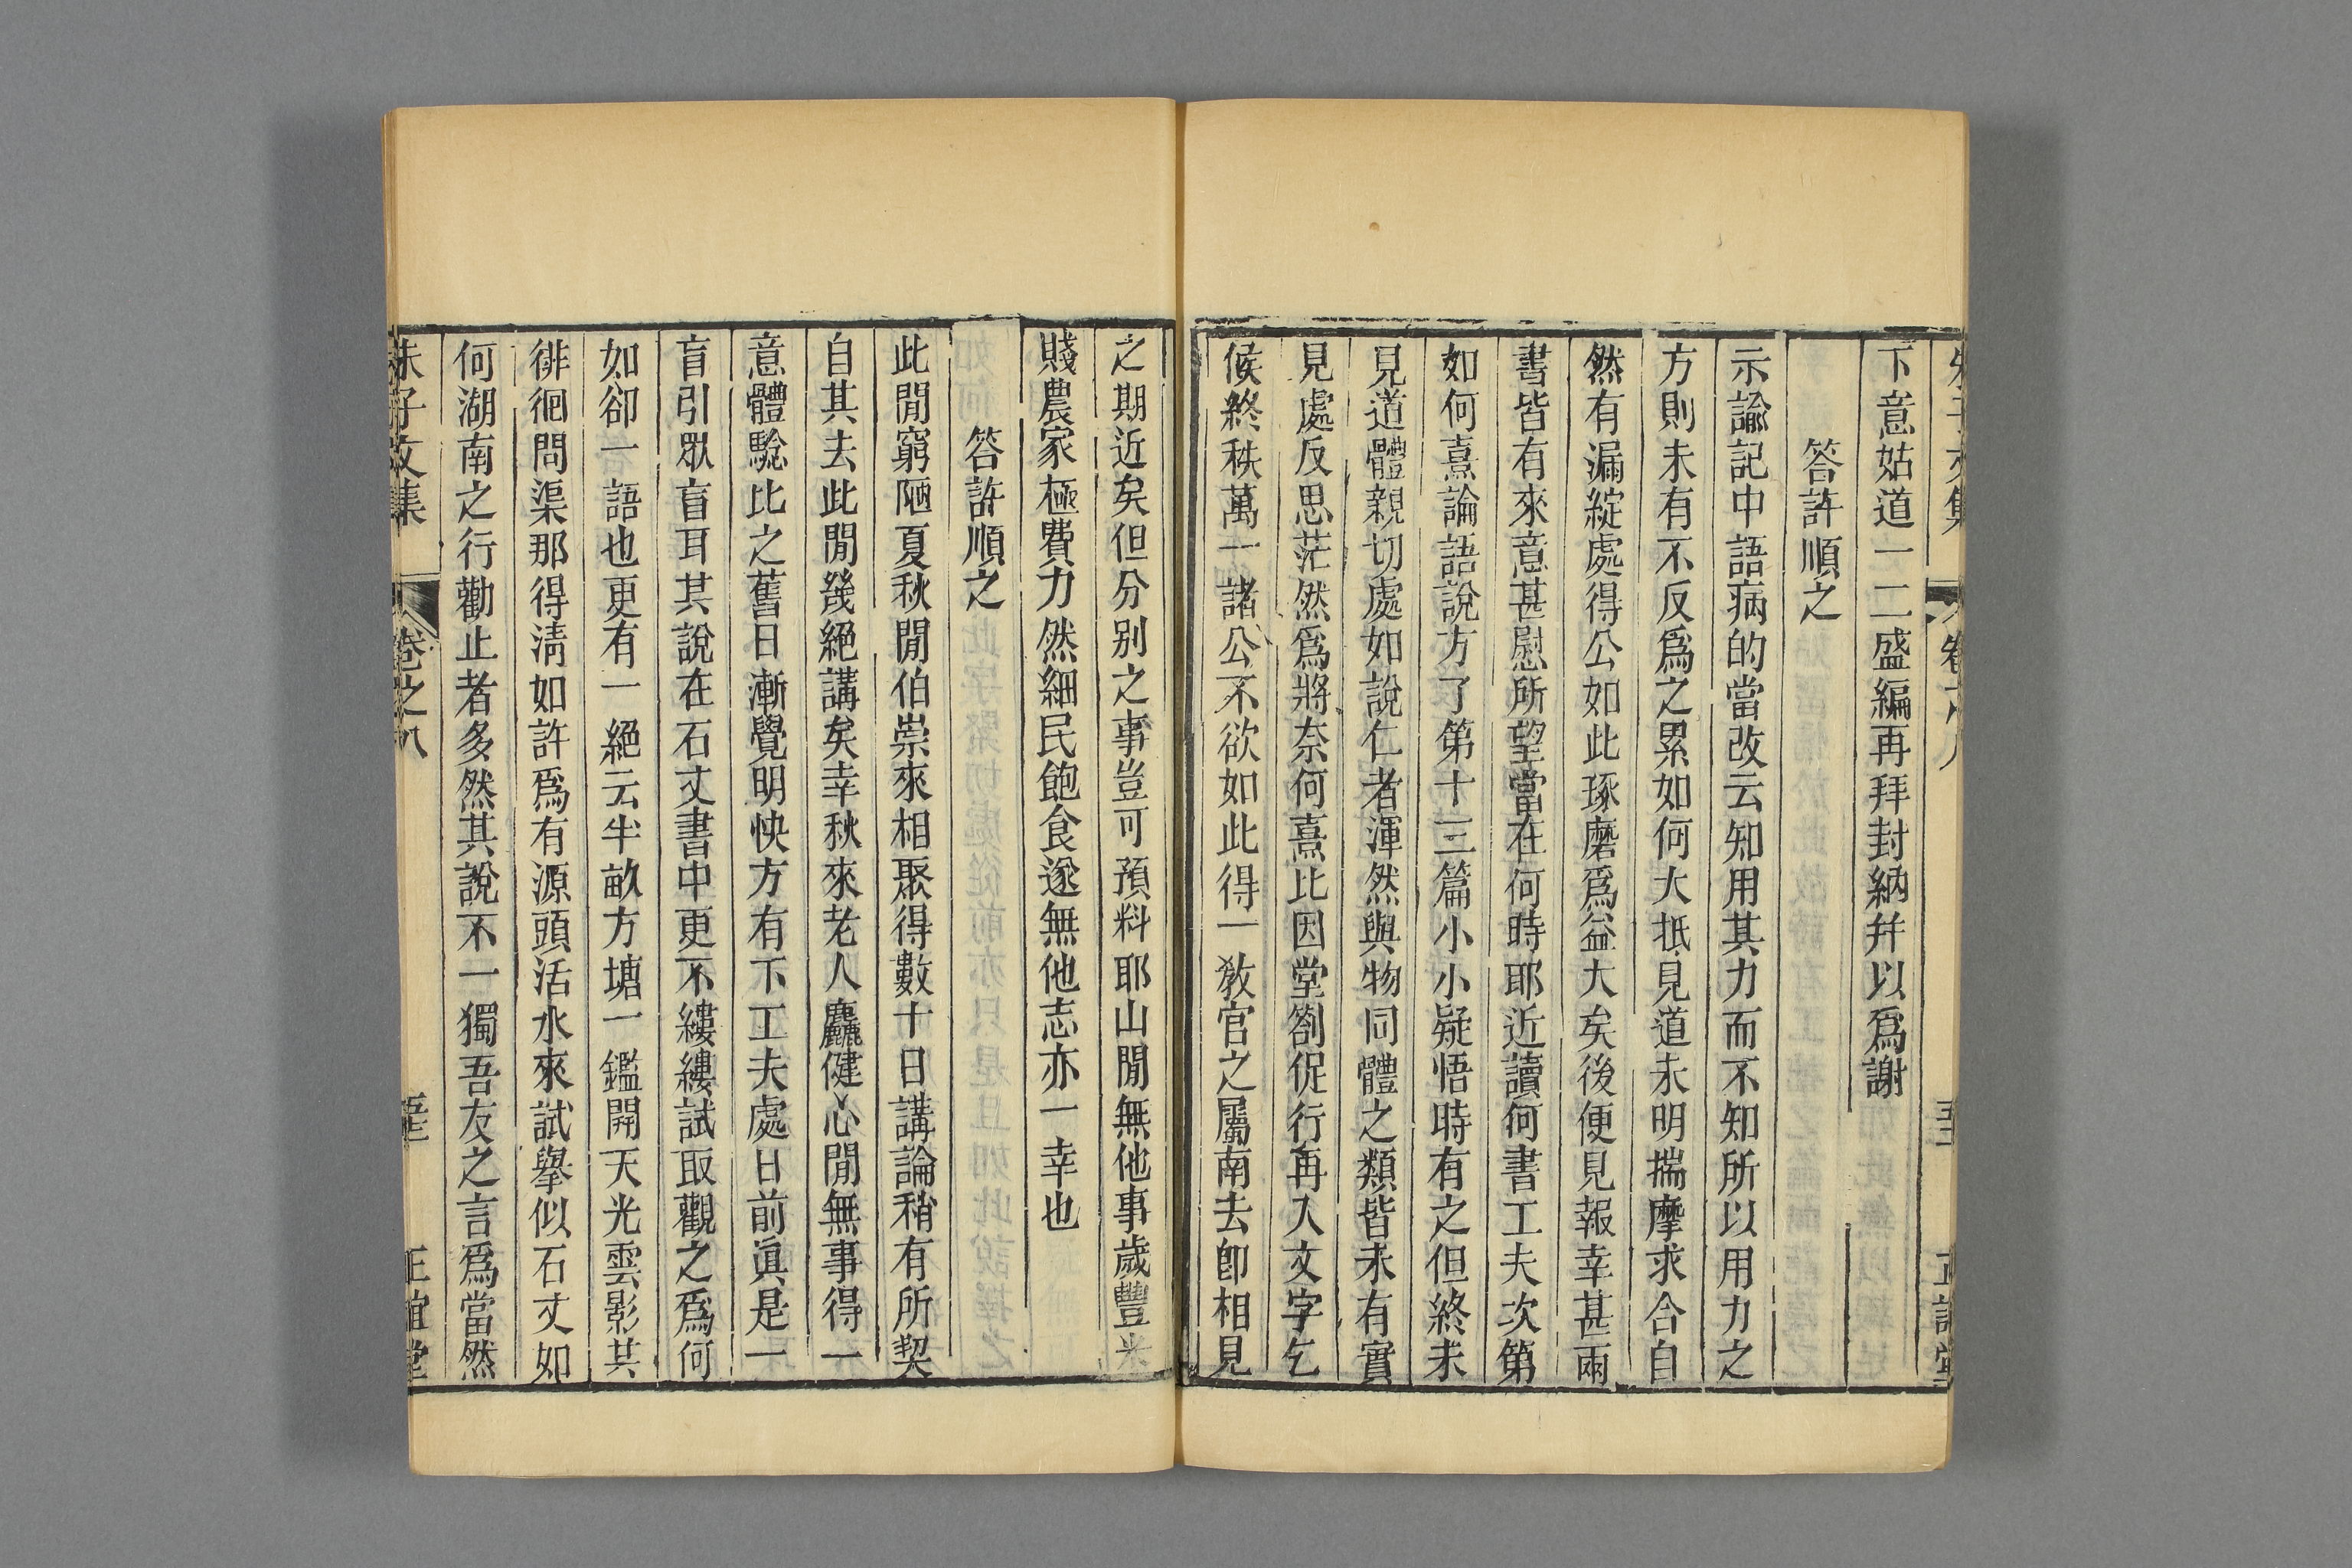 下意姑道一二盛編再拜封納幷以爲謝
答許順之
示諭記中語病的當改云知用其力而不知所以用力之
方則未有不反爲之累如何大抵見道未明揣摩求合自
然有漏綻處得公如此琢磨爲益大矣後便見報幸甚兩
書皆有來意甚慰所望當在何時耶近讀何書工夫次第
如何熹論語說方了第十三篇小小疑悟時有之但終未
見道體親切處如說仁者渾然與物同體之類皆未有實
見處反思茫然爲將奈何熹比因堂劄促行再入文字乞
候終秩萬一諸公不欲如此得一敎官之屬南去卽相見
之期近矣但分别之事豈可預料耶山閒無他事歲豐米
賤農家極費力然細民飽食遂無他志亦一幸也
答許順之
此閒窮陋夏秋閒伯崇來相聚得數十日講論稍有所契
自其去此閒幾絕講矣幸秋來老人麤健心閒無事得一
意體驗比之舊日漸覺明快方有下工夫處日前眞是一
盲引眾盲耳其說在石丈書中更不縷縷試取觀之爲何
如卻一語也更有一絕云半畝方塘一鑑開天光雲影共
徘徊問渠那得淸如許爲有源頭活水來試擧似石丈如
何湖南之行勸止者多然其說不一獨吾友之言爲當然
朱子文集 卷之八 正誼堂